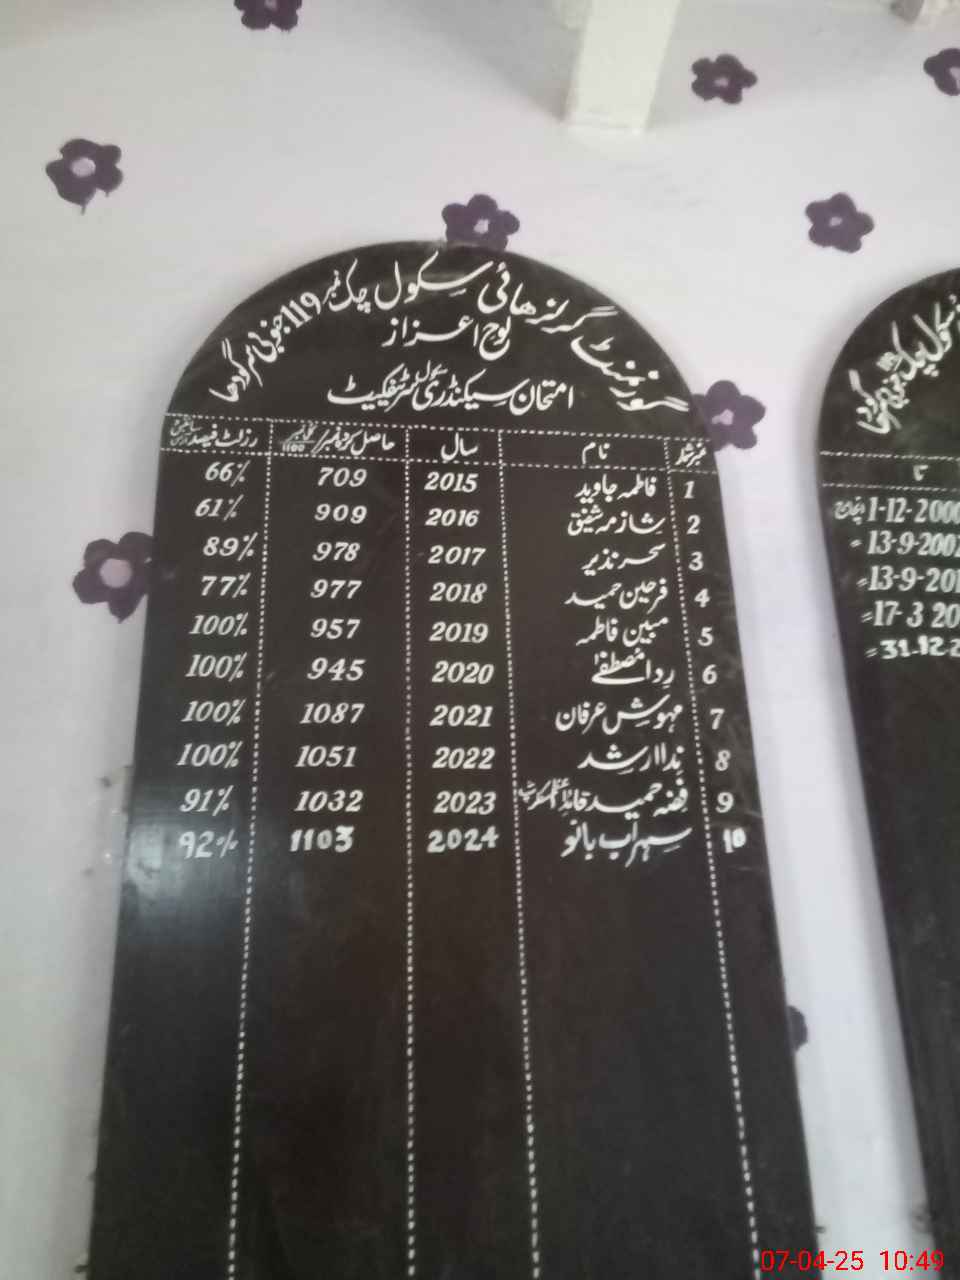 گورنمنٹ گرلز ہائی سکول چک نمبر 119 جنوبی سرگودھا
لوح اعزاز
امتحان سیکنڈری سکول سرٹیفکیٹ
نمبر شمار نام سال حاصل کردہ نمبر/کل نمبر 1100 رزلٹ فیصد
1 فاطمہ جاوید 2015 709 66%
2 شازمہ شفیق 2016 909 61%
3 سحر نذیر 2017 978 89%
4 فرحین حمید 2018 977 77%
5 مبین فاطمہ 2019 957 100%
6 ردا مصطفےٰ 2020 945 100%
7 مہوش عرفان 2021 1087 100%
8 ندا ارشد 2022 1051 100%
9 فضہ حمید قائد اعظم سکاوٹ 2023 1032 91%
10 سہراب بانو 2024 1103 92%
سکول چک
تا
1-12-2000
= 13-9-200
=13-9-201
=17-3 20
= 31.12.2
07-04-25 10:49